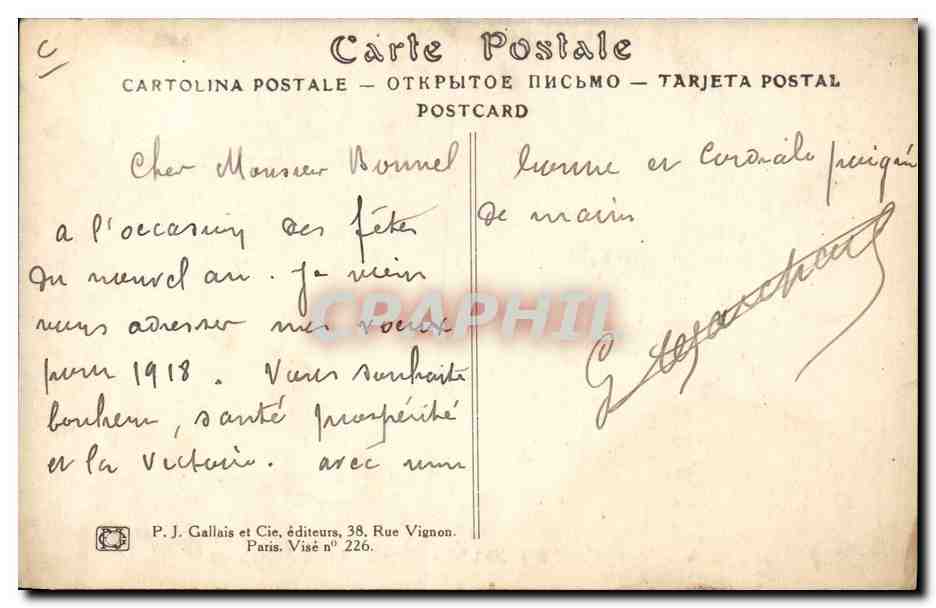 C
Carte Postale
CARTOLINA POSTALE — ОТКРЫТОЕ ПИСЬМО — TARJETA POSTAL
POSTCARD
Cher Monsieur Bonnel
a l'occasion des fêtes
du nouvel an. Je viens
vous adresser mes voeux
pour 1918. Vous souhaite
bonheur, santé prospérité
et la Victoire. avec une
bonne et cordiale poignée
de mains
G
CPARHIL
P. J. Gallais et Cie, éditeurs, 38, Rue Vignon.
Paris. Visé nº 226.